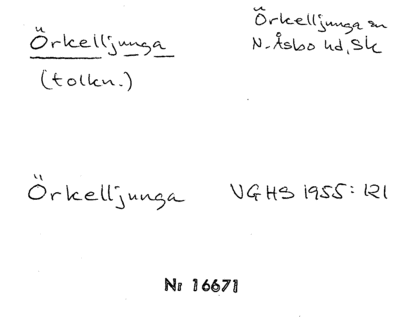 Örkelljunga
(tolkn.)
Örkelljunga sn
N. Åsbo hd, Sk
Örkelljunga VGHS 1955: 121
Nr 16671